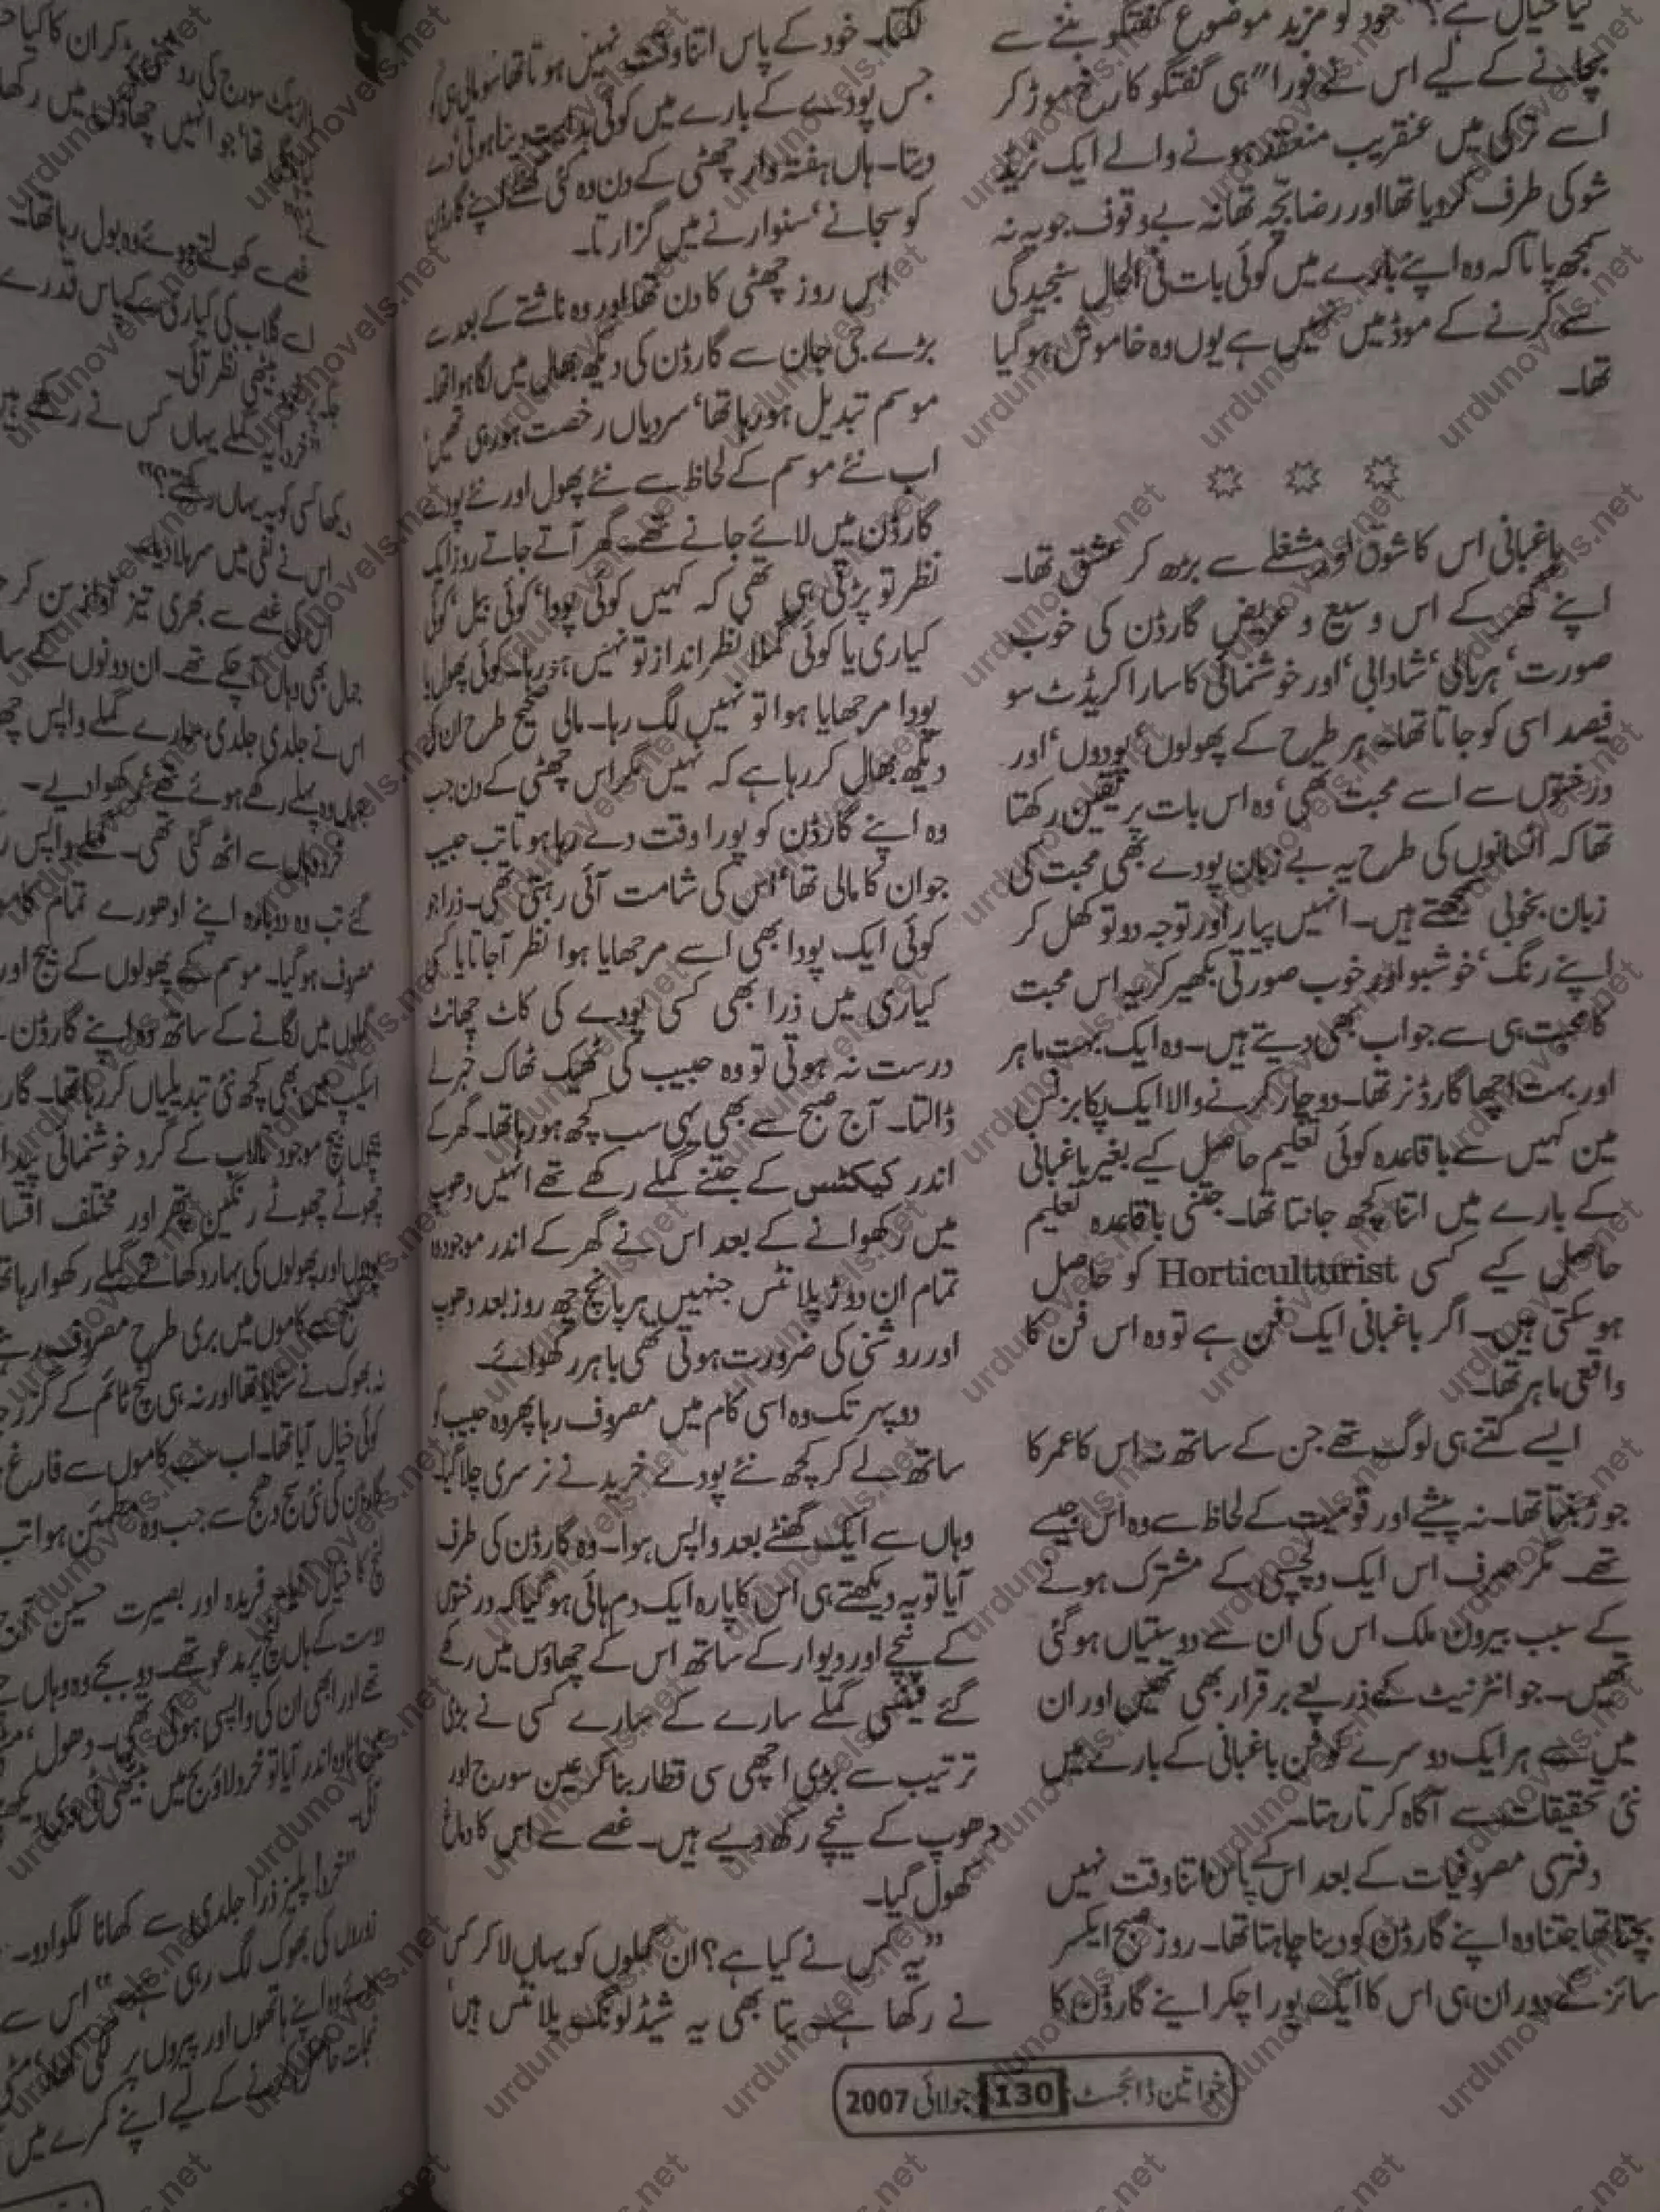 کیا خیال ہے؟" خود کو مزید موضوع گفتگو بننے سے
بچانے کے لیے اس نے فورا" ہی گفتگو کا رخ موڑ کر
اسے ترکی میں عنقریب منعقد ہونے والے ایک ٹریڈ
شو کی طرف کر دیا تھا اور رضا بچہ تھا نہ بے وقوف جو یہ نہ
سمجھ پاتا کہ وہ اپنے بارے میں کوئی بات فی الحال سنجیدگی
سے کرنے کے موڈ میں نہیں ہے یوں وہ خاموش ہو گیا
تھا۔
باغبانی اس کا شوق اور مشغلے سے بڑھ کر عشق تھا۔
اپنے گھر کے اس وسیع و عریض گارڈن کی خوب
صورت، ہریالی، شادابی، اور خوشنمائی کا سارا کریڈٹ سو
فیصد اسی کو جاتا تھا۔ ہر طرح کے پھولوں، پودوں، اور
درختوں سے اسے محبت تھی، وہ اس بات پر یقین رکھتا
تھا کہ انسانوں کی طرح یہ بے زبان پودے بھی محبت کی
زبان بخوبی سمجھتے ہیں۔ انہیں پیار اور توجہ دو تو کھل کر
اپنے رنگ، خوشبو اور خوب صورتی بکھیر کر یہ اس محبت
کا محبت ہی سے جواب بھی دیتے ہیں۔ وہ ایک بہت ماہر
اور بہت اچھا گارڈنر تھا۔ دو چار کرنے والا ایک پکا بزنس
مین کہیں سے باقاعدہ کوئی تعلیم حاصل کیے بغیر باغبانی
کے بارے میں اتنا کچھ جانتا تھا۔ جتنی باقاعدہ تعلیم
حاصل کیے کسی Horticulturist کو حاصل
ہو سکتی ہیں۔ اگر باغبانی ایک فن ہے تو وہ اس فن کا
واقعی ماہر تھا۔
ایسے کتنے ہی لوگ تھے جن کے ساتھ نہ اس کا عمر کا
جوڑ بنتا تھا۔ نہ پیشے اور قومیت کے لحاظ سے وہ اس جیسے
تھے۔ مگر صرف اس ایک دلچسپی کے مشترک ہونے
کے سبب بیرون ملک اس کی ان سے دوستیاں ہو گئی
تھیں۔ جو انٹرنیٹ کے ذریعے برقرار بھی تھیں اور ان
میں سے ہر ایک دوسرے کو فن باغبانی کے بارے میں
نئی تحقیقات سے آگاہ کرتا رہتا۔
دفتری مصروفیات کے بعد اس کے پاس اتنا وقت نہیں
بچتا تھا جتنا وہ اپنے گارڈن کو دینا چاہتا تھا۔ روز صبح ایکسر
سائز کے دوران ہی اس کا ایک پورا چکر اپنے گارڈن کا
لگتا۔ خود کے پاس اتنا وقت نہیں ہوتا تھا سو مالی ہی کو
جس پودے کے بارے میں کوئی ہدایت دینا ہوتی، دے
دیتا۔ ہاں ہفتہ وار چھٹی کے دن وہ کئی گھنٹے اپنے گارڈن
کو سجانے، سنوارنے میں گزارتا۔
اس روز چھٹی کا دن تھا اور وہ ناشتے کے بعد سے
بڑے جی جان سے گارڈن کی دیکھ بھال میں لگا ہوا تھا۔
موسم تبدیل ہو رہا تھا، سردیاں رخصت ہو رہی تھیں،
اب نئے موسم کے لحاظ سے نئے پھول اور نئے پودے
گارڈن میں لائے جانے تھے۔ گھر آتے جاتے روز ایک
نظر تو پڑتی ہی تھی کہ کہیں کوئی پودا، کوئی بیل، کوئی
کیاری یا کوئی گملا نظر انداز تو نہیں ہو رہا۔ کوئی پھول یا
پودا مرجھایا ہوا تو نہیں لگ رہا۔ مالی صحیح طرح ان کی
دیکھ بھال کر رہا ہے کہ نہیں مگر اس چھٹی کے دن جب
وہ اپنے گارڈن کو پورا وقت دے رہا ہوتا تب حبیب
جو ان کا مالی تھا، اس کی شامت آئی رہتی تھی۔ ذرا جو
کوئی ایک پودا بھی اسے مرجھایا ہوا نظر آ جاتا یا کسی
کیاری میں ذرا بھی کسی پودے کی کاٹ چھانٹ
درست نہ ہوتی تو وہ حبیب کی ٹھیک ٹھاک خبر لے
ڈالتا۔ آج صبح سے بھی یہی سب کچھ ہو رہا تھا۔ گھر کے
اندر کیکٹس کے جتنے گملے رکھے تھے انہیں دھوپ
میں رکھوانے کے بعد اس نے گھر کے اندر موجود
تمام ان ڈور پلانٹس جنہیں ہر پانچ چھ روز بعد دھوپ
اور روشنی کی ضرورت ہوتی تھی باہر رکھوائے۔
دوپہر تک وہ اسی کام میں مصروف رہا پھر وہ حبیب کو
ساتھ لے کر کچھ نئے پودے خریدنے نرسری چلا گیا۔
وہاں سے ایک گھنٹے بعد واپس ہوا۔ وہ گارڈن کی طرف
آیا تو یہ دیکھتے ہی اس کا پارہ ایک دم ہائی ہو گیا کہ درختوں
کے نیچے اور دیوار کے ساتھ اس کے چھاؤں میں رکھے
گئے فینسی گملے سارے کے سارے کسی نے بڑی
ترتیب سے بڑی اچھی سی قطار بنا کر عین سورج اور
دھوپ کے نیچے رکھ دیے ہیں۔ غصے سے اس کا دماغ
کھول گیا۔
"یہ کس نے کیا ہے؟ ان گملوں کو یہاں لا کر کس
نے رکھا ہے۔ پتا بھی یہ شیڈ لونگ پلانٹس ہیں
خواتین ڈائجسٹ 130 جولائی 2007
غصے سے کھولتے ہوئے وہ بول رہا تھا۔
اسے گلاب کی کیاری کے پاس قدرے
بیٹھی نظر آئی۔
گملے یہاں کس نے رکھے ہیں
دیکھا کسی کو یہ یہاں رکھتے؟"
اس نے نفی میں سر ہلا دیا۔
اس کی غصے سے بھری تیز آواز سن کر
جمال بھی وہاں آ چکے تھے۔ ان دونوں کے
اس نے جلدی جلدی سارے گملے واپس
جہاں وہ پہلے رکھے ہوئے تھے رکھوا دیے۔
وہاں سے اٹھ گئی تھی۔ گملے واپس
گئے تب وہ دوبارہ اپنے ادھورے تمام
مصروف ہو گیا۔ موسم کے پھولوں کے بیج اور
گملوں میں لگانے کے ساتھ وہ اپنے گارڈن
میں بھی کچھ نئی تبدیلیاں کر رہا تھا۔
بیچوں بیچ موجود تالاب کے گرد خوشنمائی پیدا
چھوٹے چھوٹے رنگین پتھر اور مختلف
اور پھولوں کی بہار دکھاتے گملے رکھوا رہا تھا
صبح سے کاموں میں بری طرح مصروف رہے
نہ بھوک نے ستایا تھا اور نہ ہی لنچ ٹائم کے گزر
کوئی خیال آیا تھا۔ اب سب کاموں سے فارغ
گارڈن کی نئی سج دھج سے جب وہ مطمئن ہوا تب
لنچ کا خیال آیا۔ فریدہ اور بصیرت حسین
دوست کے ہاں لنچ پر مدعو تھے۔ دو بجے وہ وہاں
تھے اور ابھی ان کی واپسی ہوئی تھی۔ دھول،
وہ اندر آیا تو خرد لاؤنج میں بیٹھی ٹی وی
"خرد! پلیز ذرا جلدی سے کھانا لگوا دو۔
زوروں کی بھوک لگ رہی ہے۔" اس سے
وہ اپنے ہاتھوں اور پیروں پر لگی
نجات حاصل کرنے کے لیے اپنے کمرے میں
urdunovels.net